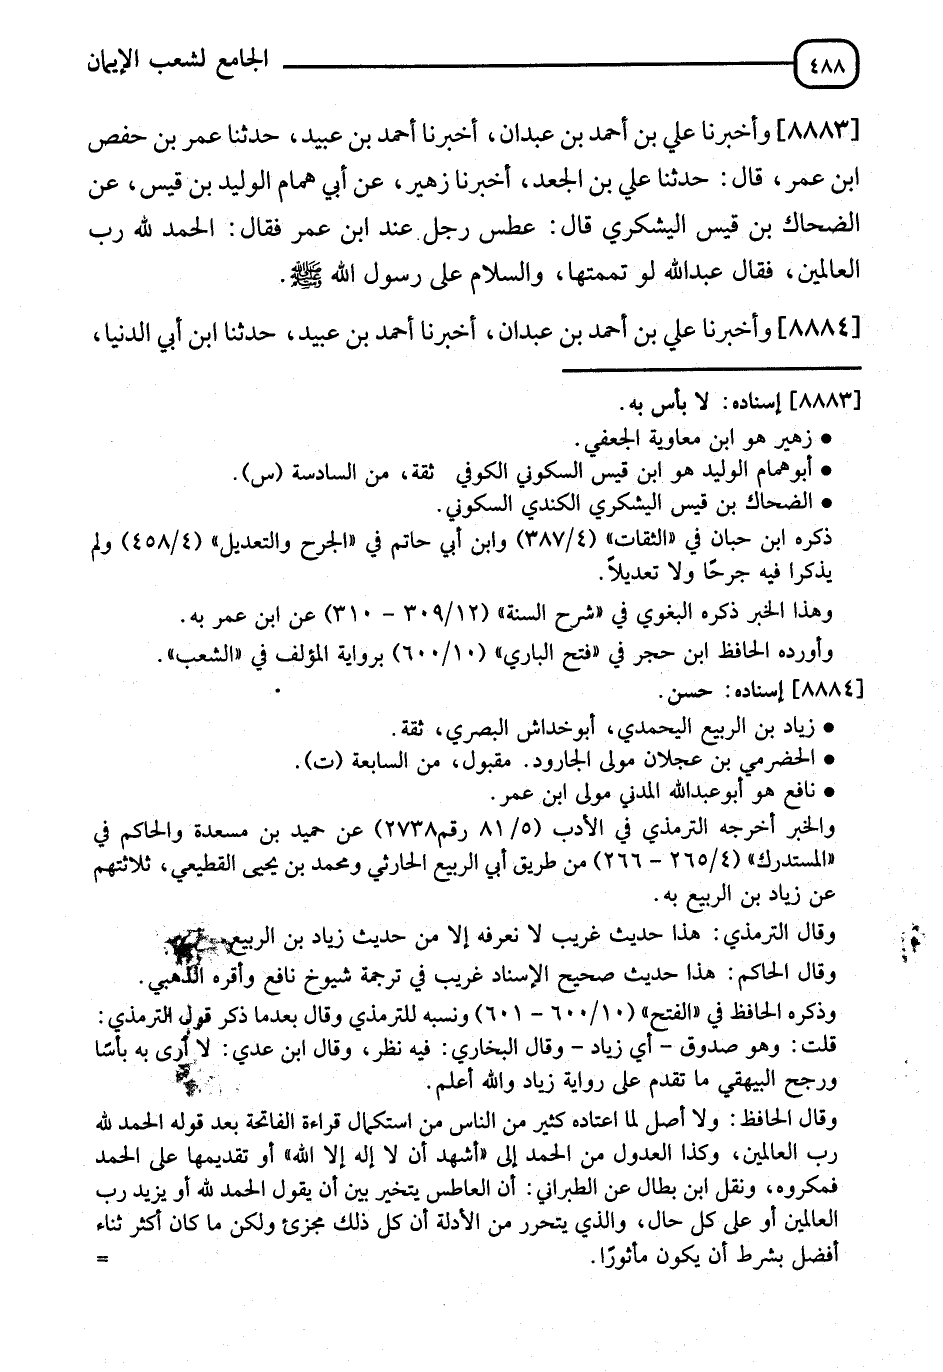 ٤٨٨
الجامع لشعب الإيمان
[٨٨٨٣] وأخبرنا علي بن أحمد بن عبدان، أخبرنا أحمد بن عبيد، حدثنا عمر بن حفص
ابن عمر، قال: حدثنا علي بن الجعد، أخبرنا زهير، عن أبي همام الوليد بن قيس، عن
الضحاك بن قيس اليشكري قال: عطس رجل عند ابن عمر فقال: الحمد لله رب
العالمين، فقال عبدالله لو تممتها، والسلام على رسول الله ﷺ.
[٨٨٨٤] وأخبرنا علي بن أحمد بن عبدان، أخبرنا أحمد بن عبيد، حدثنا ابن أبي الدنيا،
[٨٨٨٣] إسناده: لا بأس به.
• زهير هو ابن معاوية الجعفي.
• أبوهمام الوليد هو ابن قيس السكوني الكوفي ثقة، من السادسة (س).
• الضحاك بن قيس اليشكري الكندي السكوني.
ذكره ابن حبان في «الثقات» (٣٨٧/٤) وابن أبي حاتم في «الجرح والتعديل» (٤٥٨/٤) ولم
يذكرا فيه جرحًا ولا تعديلاً.
وهذا الخبر ذكره البغوي في «شرح السنة» (٣٠٩/١٢ - ٣١٠) عن ابن عمر به.
وأورده الحافظ ابن حجر في «فتح الباري» (٦٠٠/١٠) برواية المؤلف في «الشعب».
[٨٨٨٤] إسناده: حسن.
• زياد بن الربيع اليحمدي، أبوخداش البصري، ثقة.
• الحضرمي بن عجلان مولى الجارود. مقبول، من السابعة (ت).
• نافع هو أبوعبدالله المدني مولى ابن عمر.
والخبر أخرجه الترمذي في الأدب (٥/ ٨١ رقم٢٧٣٨) عن حميد بن مسعدة والحاكم في
«المستدرك» (٢٦٥/٤ - ٢٦٦) من طريق أبي الربيع الحارثي ومحمد بن يحيى القطيعي، ثلاثتهم
عن زياد بن الربيع به.
وقال الترمذي: هذا حديث غريب لا نعرفه إلا من حديث زياد بن الربيع
وقال الحاكم: هذا حديث صحيح الإسناد غريب في ترجمة شيوخ نافع وأقره الذهبي.
وذكره الحافظ في «الفتح» (٦٠٠/١٠ - ٦٠١) ونسبه للترمذي وقال بعدما ذكر قول الترمذي:
قلت: وهو صدوق - أي زياد - وقال البخاري: فيه نظر، وقال ابن عدي: لا أرى به بأسًا
ورجح البيهقي ما تقدم على رواية زياد والله أعلم.
وقال الحافظ: ولا أصل لما اعتاده كثير من الناس من استكمال قراءة الفاتحة بعد قوله الحمد لله
رب العالمين، وكذا العدول من الحمد إلى «أشهد أن لا إله إلا الله» أو تقديمها على الحمد
فمكروه، ونقل ابن بطال عن الطبراني: أن العاطس يتخير بين أن يقول الحمد لله أو يزيد رب
العالمين أو على كل حال، والذي يتحرر من الأدلة أن كل ذلك مجزئ ولكن ما كان أكثر ثناء
أفضل بشرط أن يكون مأثورًا. =